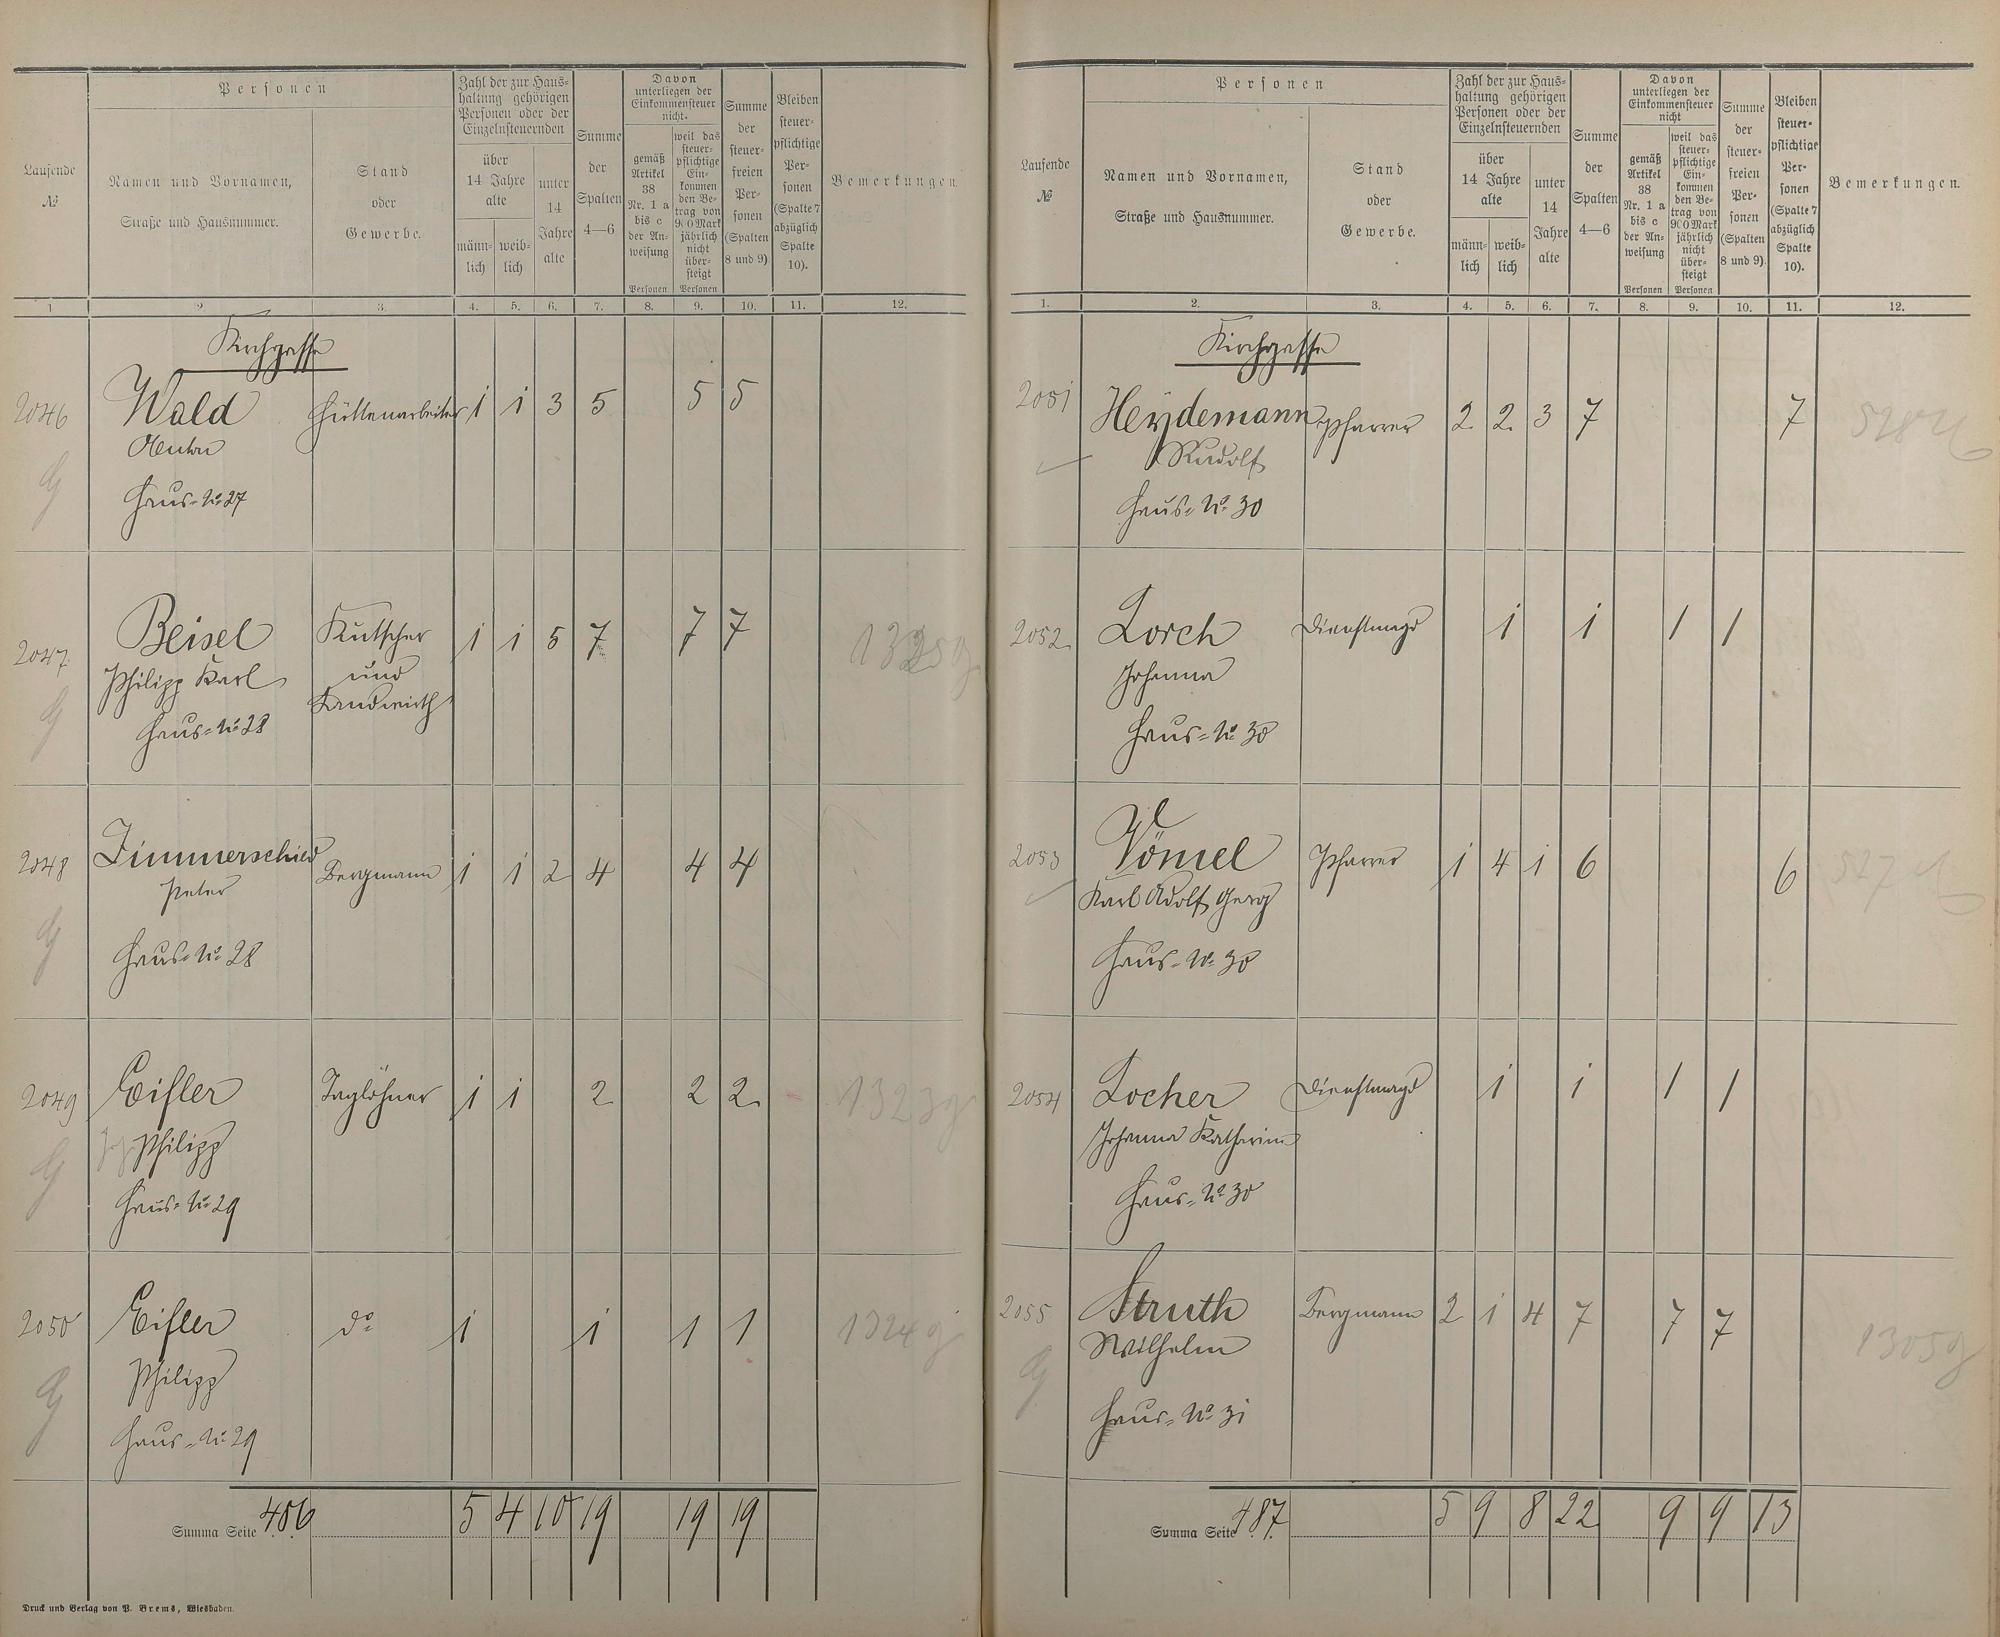 Laufende
№
Personen
Namen und Vornamen,
Straße und Hausnummer.
Stand
oder
Gewerbe.
Zahl der zur Haus-
haltung gehörigen
Personen oder der
Einzelnsteuernden
über
14 Jahre
alte
männ-
lich
weib-
lich
unter
14
Jahre
alte
Summe
der
Spalten
4—6
Davon
unterliegen der
Einkommensteuer
nicht.
gemäß
Artikel
38
Nr. 1 a
bis c
der An-
weisung
Personen
weil das
steuer-
pflichtige
Ein-
kommen
den Be-
trag von
900 Mark
jährlich
nicht
über-
steigt
Personen
Summe
der
steuer-
freien
Per-
sonen
(Spalten
8 und 9)
Bleiben
steuer-
pflichtige
Per-
sonen
(Spalte 7
abzüglich
Spalte
10).
Bemerkungen.
1 2. 3. 4. 5. 6. 7. 8. 9. 10. 11. 12.
Kirchgasse
2046 Wald Hüttenarbeiter 1 1 3 5 5 5
Anton
Haus-No 27
2047. Beisel Kutscher 1 1 5 7 7 7
Philipp Karl und
Landwirth
Haus-No 28
2048 Zimmerschied Bergmann 1 1 2 4 4 4
Peter
Haus-No 28
2049 Eifler Taglöhner 1 1 2 2 2 1323 g
Philipp
Haus-No 29
2050 Eifler do 1 1 1 1 1324 g
Philipp
Haus-No 29
Summa Seite 406 5 4 10 19 19 19
Druck und Verlag von P. Brems, Wiesbaden.
Laufende
№
Personen
Namen und Vornamen,
Straße und Hausnummer.
Stand
oder
Gewerbe.
Zahl der zur Haus-
haltung gehörigen
Personen oder der
Einzelnsteuernden
über
14 Jahre
alte
männ-
lich
weib-
lich
unter
14
Jahre
alte
Summe
der
Spalten
4—6
Davon
unterliegen der
Einkommensteuer
nicht
gemäß
Artikel
38
Nr. 1 a
bis c
der An-
weisung
Personen
weil das
steuer-
pflichtige
Ein-
kommen
den Be-
trag von
900 Mark
jährlich
nicht
über-
steigt
Personen
Summe
der
steuer-
freien
Per-
sonen
(Spalten
8 und 9)
Bleiben
steuer-
pflichtige
Per-
sonen
(Spalte 7
abzüglich
Spalte
10).
Bemerkungen.
1. 2. 3. 4. 5. 6. 7. 8. 9. 10. 11. 12.
Kirchgasse
2051 Heydemann Pfarrer 2 2 3 7 7
Rudolf
Haus-No 30
2052 Lorch Dienstmagd 1 1 1 1
Johanna
Haus-No 30
2053 Vömel Pfarrer 1 4 1 6 6 527
Karl Adolf Georg
Haus-No 30
2054 Locher Dienstmagd 1 1 1 1
Johanna Katharina
Haus-No 30
2055 Struth Bergmann 2 1 4 7 7 7 1305 g
Wilhelm
Haus-No 31
Summa Seite 487. 5 9 8 22 9 9 13